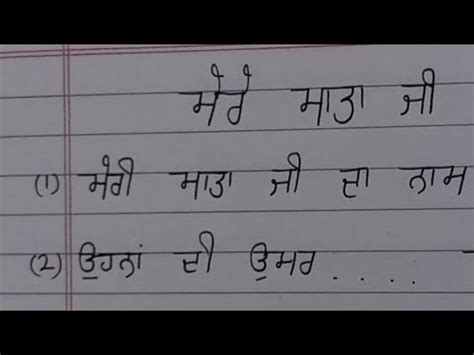 ਮੇਰੇ ਮਾਤਾ ਜੀ
(1) ਮੇਰੀ ਮਾਤਾ ਜੀ ਦਾ ਨਾਮ
(2) ਉਹਨਾਂ ਦੀ ਉਮਰ . . . . .